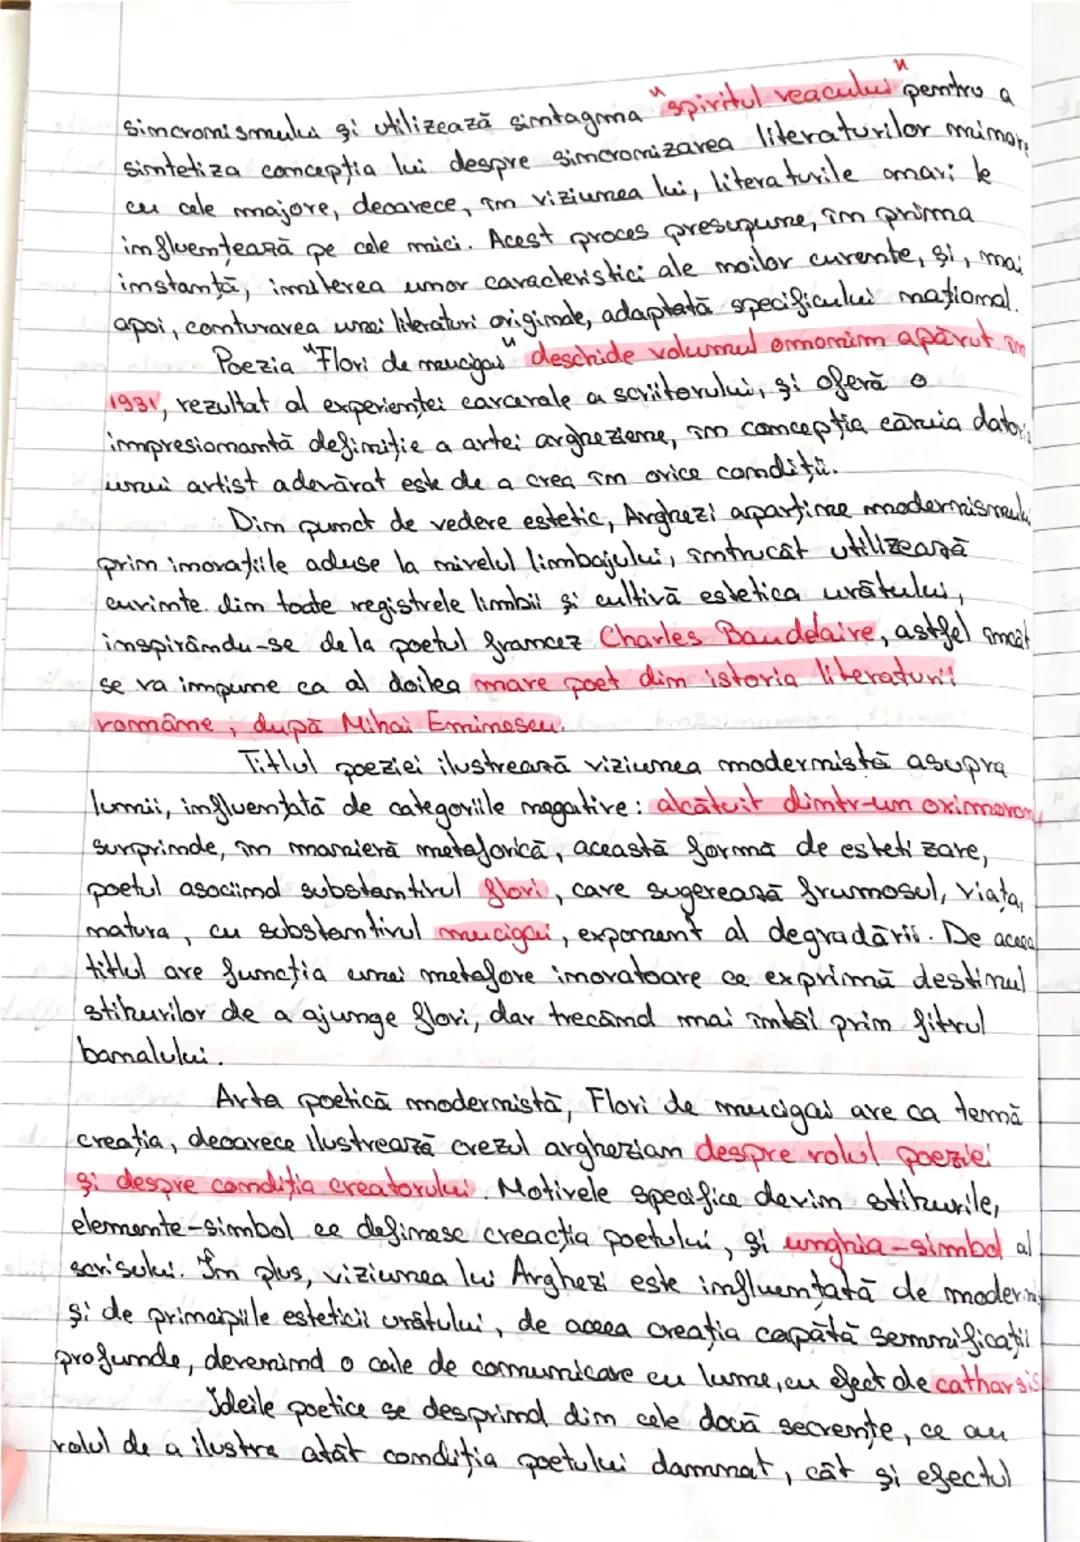 sincronismului și utilizează sintagma "spiritul veacului" pentru a
sintetiza concepția lui despre sincronizarea literaturilor minore
cu cele majore, deoarece, în viziunea lui, literaturile mari le
influențează pe cele mici. Acest proces presupune, în prima
instanță, imiterea unor caracteristici ale noilor curente, și, mai
apoi, conturarea unei literaturi originale, adaptată specificului național.
Poezia "Flori de mucigai" deschide volumul omonim apărut în
1931, rezultat al experienței carcerale a scriitorului, și oferă o
impresionantă definiție a artei argheziene, în concepția căruia datoria
unui artist adevărat este de a crea în orice condiții.
Din punct de vedere estetic, Arghezi aparține modernismului
prin inovațiile aduse la nivelul limbajului, întrucât utilizează
cuvinte din toate registrele limbii și cultivă estetica urâtului,
inspirându-se de la poetul francez Charles Baudelaire, astfel încât
se va impune ca al doilea mare poet din istoria literaturii
române, după Mihai Eminescu.
Titlul poeziei ilustrează viziunea modernistă asupra
lumii, influențată de categoriile negative: alcătuit dintr-un oximoron,
surprinde, în manieră metaforică, această formă de estetizare,
poetul asociind substantivul flori, care sugerează frumosul, viața,
natura, cu substantivul mucigai, exponent al degradării. De aceea
titlul are funcția unei metafore inovatoare ce exprimă destinul
stihurilor de a ajunge flori, dar trecând mai întâi prin fitrul
banalului.
Arta poetică modernistă, Flori de mucigai are ca temă
creația, deoarece ilustrează crezul arghezian despre rolul poeziei
și despre condiția creatorului. Motivele specifice devin stihurile,
elemente-simbol ce definesc creacția poetului, și unghia-simbol al
scrisului. În plus, viziunea lui Arghezi este influențată de
și de principiile esteticii urâtului, de aceea creația capătă semnificații
profunde, devenind o cale de comunicare cu lume, cu efect de catharsis
Ideile poetice se desprind din cele două secvențe, ce au
rolul de a ilustra atât condiția poetului damnat, cât și efectul